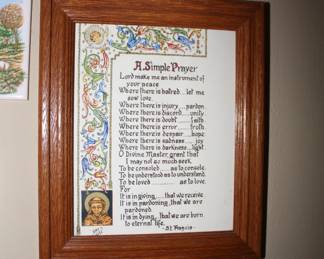 A Simple Prayer
Lord make me an instrument of
your peace
Where there is hatred... let me
sow love.
Where there is injury ... pardon
Where there is discord ..... unity
Where there is doubt ...... faith
Where there is error ...... truth
Where there is despair ... hope
Where there is sadness .... joy
Where there is darkness... light
O Divine Master, grant that
I may not so much seek,
To be consoled ..... as to console.
To be understood as to understand.
To be loved .......... as to love.
For
It is in giving ..... that we receive
It is in pardoning, that we are
pardoned.
It is in dying, that we are born
to eternal life.
- St. Francis -